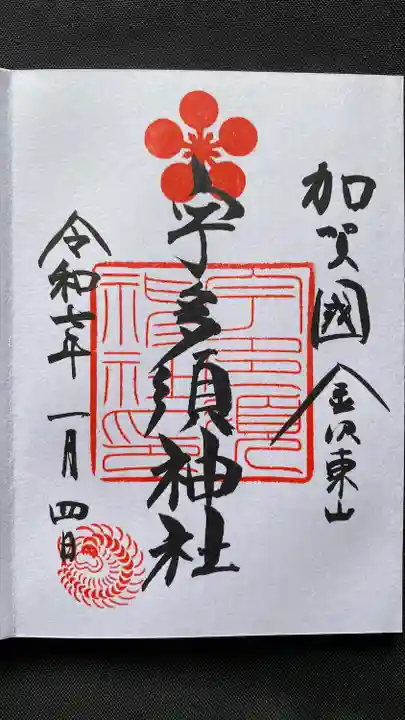 加賀國 金沢東山
宇多須神社
令和七年 一月 四日